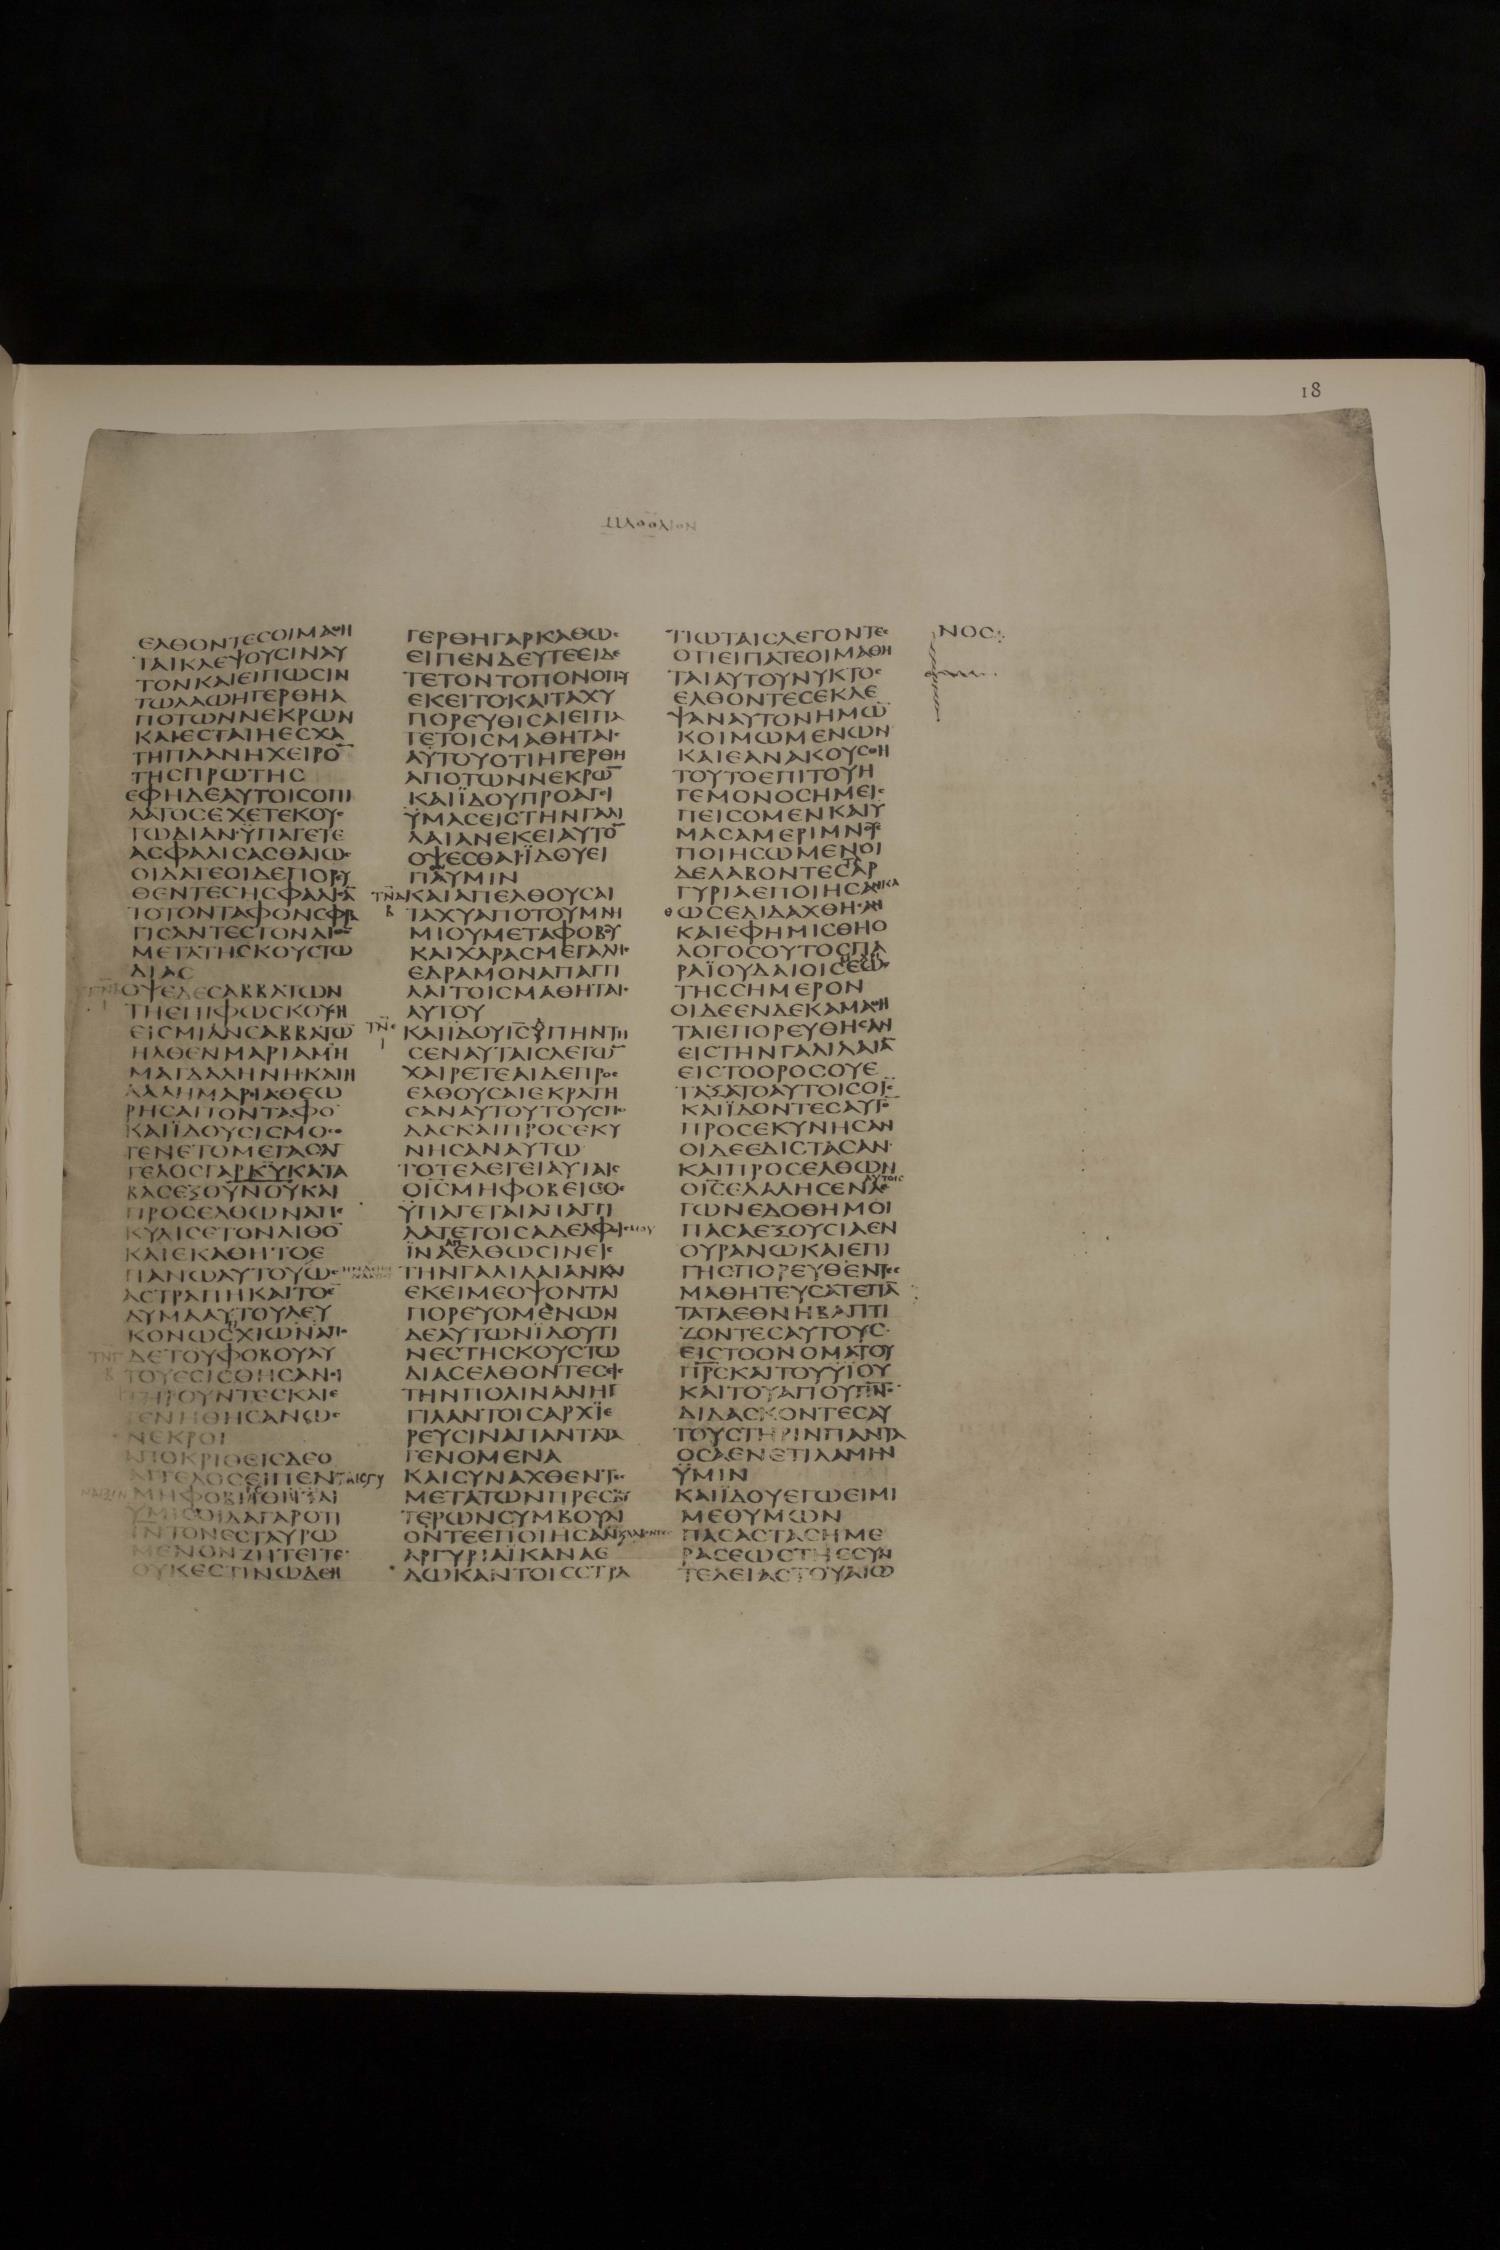 18
ΕΛΘΟΝΤΕϹΟΙΜΑΘΗ
ΤΑΙΚΛΕΨΟΥϹΙΝΑΥ
ΤΟΝΚΑΙΕΙΠΩϹΙΝ
ΤΩΛΑΩΗΓΕΡΘΗΑ
ΠΟΤΩΝΝΕΚΡΩΝ
ΚΑΙΕϹΤΑΙΗΕϹΧΑ
ΤΗΠΛΑΝΗΧΕΙΡΟ̅
ΤΗϹΠΡΩΤΗϹ
ΕΦΗΔΕΑΥΤΟΙϹΟΠΙ
ΛΑΤΟϹΕΧΕΤΕΚΟΥϹ
ΤΩΔΙΑΝ·ΫΠΑΓΕΤΕ
ΑϹΦΑΛΙϹΑϹΘΑΙΩϹ
ΟΙΔΑΤΕΟΙΔΕΠΟΡΕΥ
ΘΕΝΤΕϹΗϹΦΑΛΙϹΑ̅
ΤΟΤΟΝΤΑΦΟΝϹΦΡΑ
ΓΙϹΑΝΤΕϹΤΟΝΛΙΘΟ̅
ΜΕΤΑΤΗϹΚΟΥϹΤΩ
ΔΙΑϹ
ΟΨΕΔΕϹΑΒΒΑΤΩΝ
ΤΗΕΠΙΦΩϹΚΟΥϹΗ
ΕΙϹΜΙΑΝϹΑΒΒΑΤΩ̅
ΗΛΘΕΝΜΑΡΙΑΜΗ
ΜΑΓΔΑΛΗΝΗ·ΚΑΙΗ
ΑΛΛΗΜΑΡΙΑΘΕΩ
ΡΗϹΑΙΤΟΝΤΑΦΟ̅
ΚΑΙΪΔΟΥϹΙϹΜΟϹΕ
ΓΕΝΕΤΟΜΕΓΑϹΑΓ
ΓΕΛΟϹΓΑΡΚ̅Υ̅ΚΑΤΑ
ΒΑϹΕΞΟΥ̅Ν̅Ο̅Υ̅ΚΑΙ
ΠΡΟϹΕΛΘΩΝΑΠΕ
ΚΥΛΙϹΕΤΟΝΛΙΘΟ̅
ΚΑΙΕΚΑΘΗΤΟΕ
ΠΑΝΩΑΥΤΟΥΩϹ
ΑϹΤΡΑΠΗΚΑΙΤΟΕ̅
ΔΥΜΑΑΥΤΟΥΛΕΥ
ΚΟΝΩϹΧΙΩΝΑΠΟ
ΔΕΤΟΥΦΟΒΟΥΑΥ
ΤΟΥΕϹΙϹΘΗϹΑΝΟΙ
ΤΗΡΟΥΝΤΕϹΚΑΙΕ
ΓΕΝΗΘΗϹΑΝΩϹ
ΝΕΚΡΟΙ
ΑΠΟΚΡΙΘΕΙϹΔΕΟ
ΑΓΓΕΛΟϹΕΙΠΕΝΤΑΙϹΓΥ
ΟΙΔΑΓΑΡΟΤΙ
Ι̅Ν̅ΤΟΝΕϹΤΑΥΡΩ
ΜΕΝΟΝΖΗΤΕΙΤΕ·
ΟΥΚΕϹΤΙΝΩΔΕΗ
ΓΕΡΘΗΓΑΡΚΑΘΩϹ
ΕΙΠΕΝΔΕΥΤΕΕΙΔΕ
ΤΕΤΟΝΤΟΠΟΝΟΠΟΥ
ΕΚΕΙΤΟ·ΚΑΙΤΑΧΥ
ΠΟΡΕΥΘΙϹΑΙΕΙΠΑ
ΤΕΤΟΙϹΜΑΘΗΤΑΙϹ
ΑΥΤΟΥΟΤΙΗΓΕΡΘΗ
ΑΠΟΤΩΝΝΕΚΡΩ̅
ΚΑΙΪΔΟΥΠΡΟΑΓΕΙ
ΫΜΑϹΕΙϹΤΗΝΓΑΛΙ
ΛΑΙΑΝΕΚΕΙΑΥΤΟ̅
ΟΨΕϹΘΑΙ·ΪΔΟΥΕΙ
ΠΑΥΜΙΝ
ΚΑΙΑΠΕΛΘΟΥϹΑΙ
ΤΑΧΥΑΠΟΤΟΥΜΝΗ
ΜΙΟΥΜΕΤΑΦΟΒΟΥ
ΚΑΙΧΑΡΑϹΜΕΓΑΛΗϹ
ΕΔΡΑΜΟΝΑΠΑΓΓΙ
ΛΑΙΤΟΙϹΜΑΘΗΤΑΙϹ
ΑΥΤΟΥ
ΚΑΙΪΔΟΥΙ̅Ϲ̅ΫΠΗΝΤΗ
ϹΕΝΑΥΤΑΙϹΛΕΓΩ̅
ΧΑΙΡΕΤΕΑΙΔΕΠΡΟϹ
ΕΛΘΟΥϹΑΙΕΚΡΑΤΗ
ϹΑΝΑΥΤΟΥΤΟΥϹΠΟ
ΔΑϹΚΑΙΠΡΟϹΕΚΥ
ΝΗϹΑΝΑΥΤΩ
ΤΟΤΕΛΕΓΕΙΑΥΤΑΙϹ
ΟΙ̅Ϲ̅ΜΗΦΟΒΕΙϹΘΕ
ΫΠΑΓΕΤΑΙΑΠΑΓΓΙ
ΛΑΤΕΤΟΙϹΑΔΕΛΦΟΙϹΜΟΥ
ΪΝΑΕΛΘΩϹΙΝΕΙϹ
ΤΗΝΓΑΛΙΛΑΙΑΝΚΑΙ
ΕΚΕΙΜΕΟΨΟΝΤΑΙ
ΠΟΡΕΥΟΜΕΝΩΝ
ΔΕΑΥΤΩΝΪΔΟΥΤΙ
ΝΕϹΤΗϹΚΟΥϹΤΩ
ΔΙΑϹΕΛΘΟΝΤΕϹΕΙϹ
ΤΗΝΠΟΛΙΝΑΝΗΓ
ΓΙΛΑΝΤΟΙϹΑΡΧΪΕ
ΡΕΥϹΙΝΑΠΑΝΤΑΤΑ
ΓΕΝΟΜΕΝΑ
ΚΑΙϹΥΝΑΧΘΕΝΤΕϹ
ΜΕΤΑΤΩΝΠΡΕϹΒΥ
ΤΕΡΩΝϹΥΜΒΟΥΛΙ
ΟΝΤΕΕΠΟΙΗϹΑΝ
ΑΡΓΥΡΙΑΪΚΑΝΑΕ
ΔΩΚΑΝΤΟΙϹϹΤΡΑ
ΤΙΩΤΑΙϹΛΕΓΟΝΤΕϹ
ΟΤΙΕΙΠΑΤΕΟΙΜΑΘΗ
ΤΑΙΑΥΤΟΥΝΥΚΤΟϹ
ΕΛΘΟΝΤΕϹΕΚΛΕ
ΨΑΝΑΥΤΟΝΗΜΩ̅
ΚΟΙΜΩΜΕΝΩΝ
ΚΑΙΕΑΝΑΚΟΥϹΘΗ
ΤΟΥΤΟΕΠΙΤΟΥΗ
ΓΕΜΟΝΟϹΗΜΕΙϹ
ΠΕΙϹΟΜΕΝΚΑΙΥ
ΜΑϹΑΜΕΡΙΜΝΟΥϹ
ΠΟΙΗϹΩΜΕΝΟΙ
ΔΕΛΑΒΟΝΤΕϹΑΡ
ΓΥΡΙΑΕΠΟΙΗϹΑΝ
ΩϹΕΔΙΔΑΧΘΗϹΑΝ
ΚΑΙΕΦΗΜΙϹΘΗΟ
ΛΟΓΟϹΟΥΤΟϹΠΑ
ΡΑΪΟΥΔΑΙΟΙϹΕΩϹ
ΤΗϹϹΗΜΕΡΟΝ
ΟΙΔΕΕΝΔΕΚΑΜΑΘΗ
ΤΑΙΕΠΟΡΕΥΘΗϹΑΝ
ΕΙϹΤΗΝΓΑΛΙΛΑΙΑ̅
ΕΙϹΤΟΟΡΟϹΟΥΕ
ΤΑΞΑΤΟΑΥΤΟΙϹΟΙ̅Ϲ̅
ΚΑΙΪΔΟΝΤΕϹΑΥΤΟ̅
ΠΡΟϹΕΚΥΝΗϹΑΝ
ΟΙΔΕΕΔΙϹΤΑϹΑΝ·
ΚΑΙΠΡΟϹΕΛΘΩΝ
ΟΙ̅Ϲ̅ΕΛΑΛΗϹΕΝΛΕ
ΓΩΝΕΔΟΘΗΜΟΙ
ΠΑϹΑΕΞΟΥϹΙΑΕΝ
ΟΥΡΑΝΩΚΑΙΕΠΙ
ΓΗϹΠΟΡΕΥΘΕΝΤΕϹ
ΜΑΘΗΤΕΥϹΑΤΕΠΑ̅
ΤΑΤΑΕΘΝΗΒΑΠΤΙ
ΖΟΝΤΕϹΑΥΤΟΥϹ·
ΕΙϹΤΟΟΝΟΜΑΤΟΥ
Π̅Ρ̅Ϲ̅ΚΑΙΤΟΥΫΪΟΥ
ΚΑΙΤΟΥΑΓΙΟΥΠ̅Ν̅Ϲ̅
ΔΙΔΑϹΚΟΝΤΕϹΑΥ
ΤΟΥϹΤΗΡΙΝΠΑΝΤΑ
ΟϹΑΕΝΕΤΙΛΑΜΗΝ
ΫΜΙΝ
ΚΑΙΪΔΟΥΕΓΩΕΙΜΙ
ΜΕΘΥΜΩΝ
ΠΑϹΑϹΤΑϹΗΜΕ
ΡΑϹΕΩϹΤΗϹϹΥΝ
ΤΕΛΕΙΑϹΤΟΥΑΙΩ
ΝΟϹ